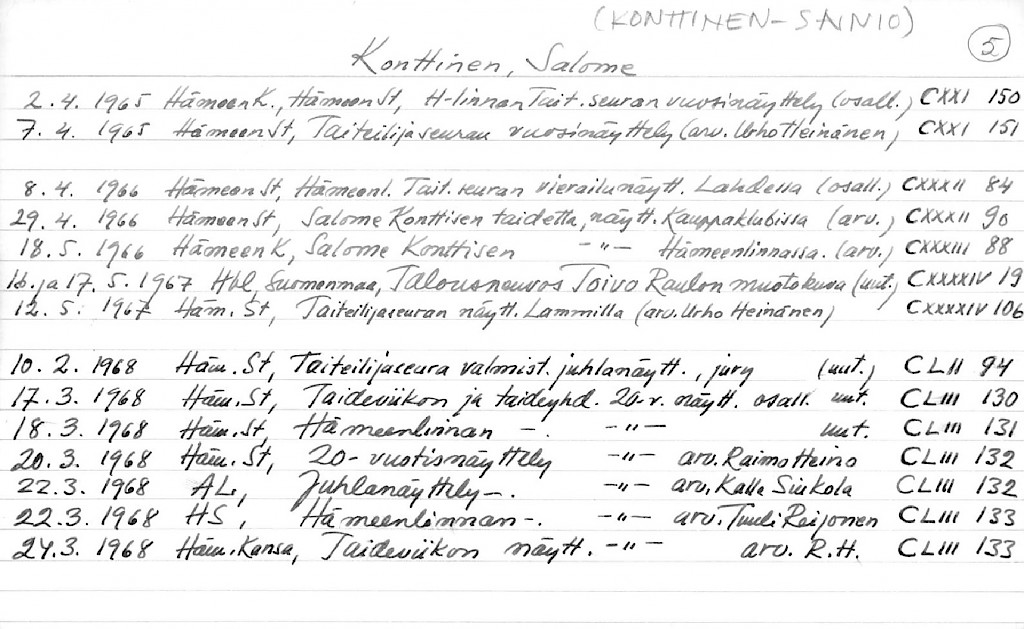 (KONTTINEN-SAINIO)
5
Konttinen, Salome
2.4. 1965 Hämeen K., Hämeen St, H-linnan Tait. seuran vuosinäyttely (osall.) CXXI 150
7.4. 1965 Hämeen St, Taiteilijaseuran vuosinäyttely (arv. Urho Heinänen) CXXI 151
8.4. 1966 Hämeen St, Hämeenl. Tait. seuran vierailunäytt. Lahdessa (osall.) CXXXII 84
29.4. 1966 Hämeen St, Salome Konttisen taidetta, näytt. Kauppaklubissa (arv.) CXXXII 90
18.5. 1966 Hämeen K, Salome Konttisen -"- Hämeenlinnassa. (arv.) CXXXIII 88
16. ja 17.5. 1967 Hbl, Suomenmaa, Talousneuvos Toivo Raulon muotokuva (uut.) CXXXXIV 19
12.5. 1967 Häm. St, Taiteilijaseuran näytt. Lammilla (arv. Urho Heinänen) CXXXXIV 106
10.2. 1968 Häm. St, Taiteilijaseura valmist. juhlanäytt., jury (uut.) CLII 94
17.3. 1968 Häm. St, Taideviikon ja taideyhd. 20-v. näytt. osall. uut. CLIII 130
18.3. 1968 Häm. St, Hämeenlinnan -. -"- uut. CLIII 131
20.3. 1968 Häm. St, 20-vuotisnäyttely -"- arv. Raimo Heino CLIII 132
22.3. 1968 AL, Juhlanäyttely -. -"- arv. Kalle Siukola CLIII 132
22.3. 1968 HS, Hämeenlinnan -. -"- arv. Tuuli Reijonen CLIII 133
24.3. 1968 Häm. Kansa, Taideviikon näytt. -"- arv. R.H. CLIII 133